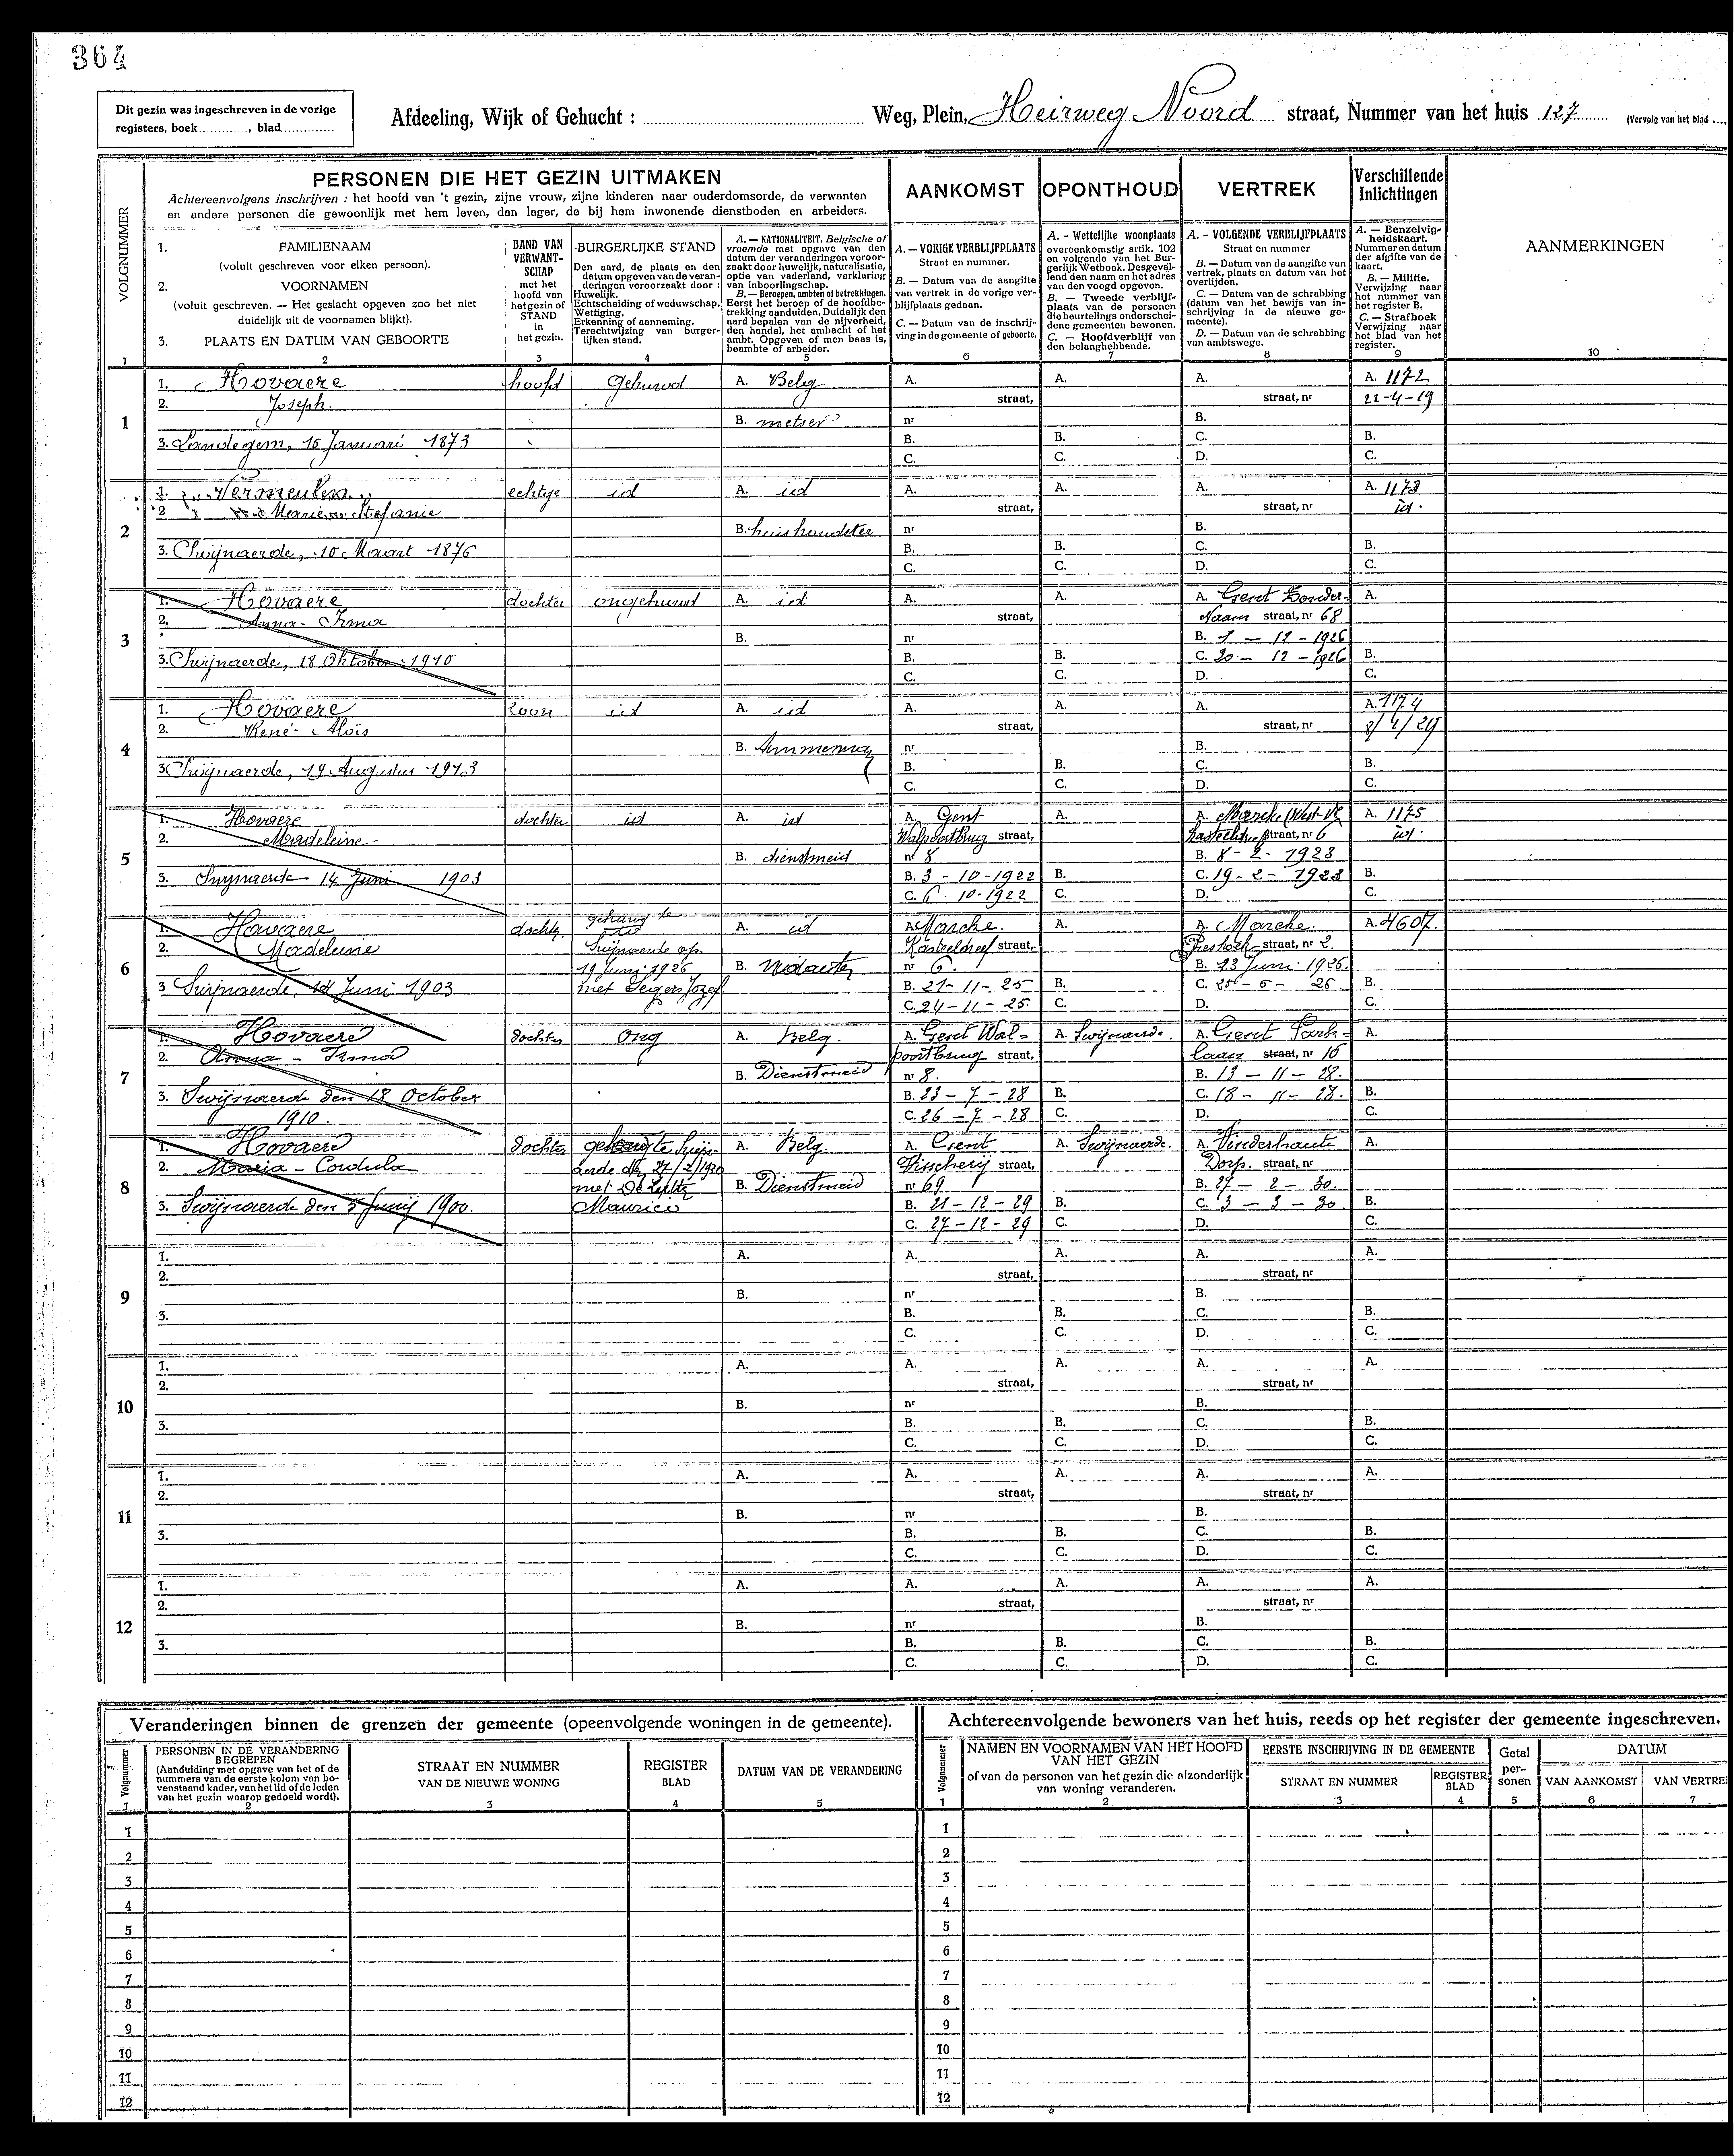 364
Dit gezin was ingeschreven in de vorige
registers, boek ............, blad ............
Afdeeling, Wijk of Gehucht : ............ Weg, Plein, Heirweg Noord straat, Nummer van het huis 127 (Vervolg van het blad ....
PERSONEN DIE HET GEZIN UITMAKEN
Achtereenvolgens inschrijven : het hoofd van 't gezin, zijne vrouw, zijne kinderen naar ouderdomsorde, de verwanten
en andere personen die gewoonlijk met hem leven, dan lager, de bij hem inwonende dienstboden en arbeiders.
AANKOMST
OPONTHOUD
VERTREK
Verschillende
Inlichtingen
VOLGNUMMER
1
1. FAMILIENAAM
(voluit geschreven voor elken persoon).
2. VOORNAMEN
(voluit geschreven. — Het geslacht opgeven zoo het niet
duidelijk uit de voornamen blijkt).
3. PLAATS EN DATUM VAN GEBOORTE
2
BAND VAN
VERWANT-
SCHAP
met het
hoofd van
het gezin of
STAND
in
het gezin.
3
BURGERLIJKE STAND
Den aard, de plaats en den
datum opgeven van de veran-
deringen veroorzaakt door :
Huwelijk.
Echtscheiding of weduwschap.
Wettiging.
Erkenning of aanneming.
Terechtwijzing van burger-
lijken stand.
4
A. — NATIONALITEIT. Belgische of
vreemde met opgave van den
datum der veranderingen veroor-
zaakt door huwelijk, naturalisatie,
optie van vaderland, verklaring
van inboorlingschap.
B. — Beroepen, ambten of betrekkingen.
Eerst het beroep of de hoofdbe-
trekking aanduiden. Duidelijk den
aard bepalen van de nijverheid,
den handel, het ambacht of het
ambt. Opgeven of men baas is,
beambte of arbeider.
5
A. — VORIGE VERBLIJFPLAATS
Straat en nummer.
B. — Datum van de aangifte
van vertrek in de vorige ver-
blijfplaats gedaan.
C. — Datum van de inschrij-
ving in de gemeente of geboorte.
6
A. - Wettelijke woonplaats
overeenkomstig artik. 102
en volgende van het Bur-
gerlijk Wetboek. Desgeval-
lend den naam en het adres
van den voogd opgeven.
B. — Tweede verblijf-
plaats van de personen
die beurtelings onderschei-
dene gemeenten bewonen.
C. — Hoofdverblijf van
den belanghebbende.
7
A. - VOLGENDE VERBLIJFPLAATS
Straat en nummer
B. — Datum van de aangifte van
vertrek, plaats en datum van het
overlijden.
C. — Datum van de schrabbing
(datum van het bewijs van in-
schrijving in de nieuwe ge-
meente).
D. — Datum van de schrabbing
van ambtswege.
8
A. — Eenzelvig-
heidskaart.
Nummer en datum
der afgifte van de
kaart.
B. — Militie.
Verwijzing naar
het nummer van
het register B.
C. — Strafboek
Verwijzing naar
het blad van het
register.
9
AANMERKINGEN
10
1
1. Hovaere hoofd gehuwd A. Belg A. A. A. A. 1172
2. Joseph. straat, straat, nr 22-4-19
B. metser nr B.
3. Landegem, 16 Januari 1873 B. B. C. B.
C. C. D. C.
2
1. Vermeulen echtge id A. id A. A. A. A. 1173
2 Marie Stefanie straat, straat, nr id.
B. huishoudster nr B.
3. Swijnaerde, 10 Maart 1876 B. B. C. B.
C. C. D. C.
3
1. Hovaere dochter ongehuwd A. id A. A. A. Gent Zonder- A.
2. Anna - Irma straat, Naam straat, nr 68
B. nr B. 1 - 12 - 1926
3. Swijnaerde, 18 Oktober 1910 B. B. C. 20 - 12 - 1926 B.
C. C. D. C.
4
1. Hovaere zoon id A. id A. A. A. A. 1174
2. René - Aloïs straat, straat, nr
B. nr B.
3. Swijnaerde, 19 Augustus 1913 B. B. C. B.
C. C. D. C.
5
1. Hovaere dochter id A. id A. Gent A. A. Marcke (West-Vl A. 1175
2. Madeleine - Walpoortbrug straat, Kasteeldreef straat, nr 6 id.
B. dienstmeid nr 8 B. 8 - 2 - 1923
3. Swijnaerde 14 Juni 1903 B. 3 - 10 - 1922 B. C. 19 - 2 - 1923 B.
C. 6 - 10 - 1922 C. D. C.
6
1. Hovaere dochtr. gehuwd te A. id A. Marcke. A. A. Marcke. A. 4607.
2. Madeleine Swijnaerde op Kasteeldreef straat, straat, nr 2.
19 Juni 1926 B. nr 6. B. 23 Juni 1926.
3 Swijnaerde, 14 Juni 1903 met Seigers Jozef B. 21 - 11 - 25 B. C. 25 - 6 - 26. B.
C. 24 - 11 - 25. C. D. C.
7
1. Hovaere dochter ong A. Belg. A. Gent Wal= A. Swijnaerde. A. Gent Park= A.
2. Anna - Irma poortbrug straat, laan straat, nr 16
B. Dienstmeid nr 8. B. 13 - 11 - 28.
3. Swijnaerde den 18 October B. 23 - 7 - 28 B. C. 18 - 11 - 28. B.
1910. C. 26 - 7 - 28 C. D. C.
8
1. Hovaere dochter gehuwd te Swijn- A. Belg. A. Gent A. Swijnaerde. A. Vinderhaute A.
2. Maria - Cordula aerde den 27/2/1930 Visscherij straat, Dorp. straat, nr
met B. Dienstmeid nr 69 B. 27 - 2 - 30.
3. Swijnaerde den 5 Junij 1900. Maurice B. 21 - 12 - 29 B. C. 3 - 3 - 30. B.
C. 27 - 12 - 29 C. D. C.
9
1. A. A. A. A. A.
2. straat, straat, nr
B. nr B.
3. B. B. C. B.
C. C. D. C.
10
1. A. A. A. A. A.
2. straat, straat, nr
B. nr B.
3. B. B. C. B.
C. C. D. C.
11
1. A. A. A. A. A.
2. straat, straat, nr
B. nr B.
3. B. B. C. B.
C. C. D. C.
12
1. A. A. A. A. A.
2. straat, straat, nr
B. nr B.
3. B. B. C. B.
C. C. D. C.
Veranderingen binnen de grenzen der gemeente (opeenvolgende woningen in de gemeente).
Volgnummer
1
PERSONEN IN DE VERANDERING
BEGREPEN
(Aanduiding met opgave van het of de
nummers van de eerste kolom van bo-
venstaand kader, van het lid of de leden
van het gezin waarop gedoeld wordt).
2
STRAAT EN NUMMER
VAN DE NIEUWE WONING
3
REGISTER
BLAD
4
DATUM VAN DE VERANDERING
5
1
2
3
4
5
6
7
8
9
10
11
12
Achtereenvolgende bewoners van het huis, reeds op het register der gemeente ingeschreven.
Volgnummer
1
NAMEN EN VOORNAMEN VAN HET HOOFD
VAN HET GEZIN
of van de personen van het gezin die afzonderlijk
van woning veranderen.
2
EERSTE INSCHRIJVING IN DE GEMEENTE
STRAAT EN NUMMER
3
REGISTER
BLAD
4
Getal
per-
sonen
5
DATUM
VAN AANKOMST
6
VAN VERTRE
7
1
2
3
4
5
6
7
8
9
10
11
12